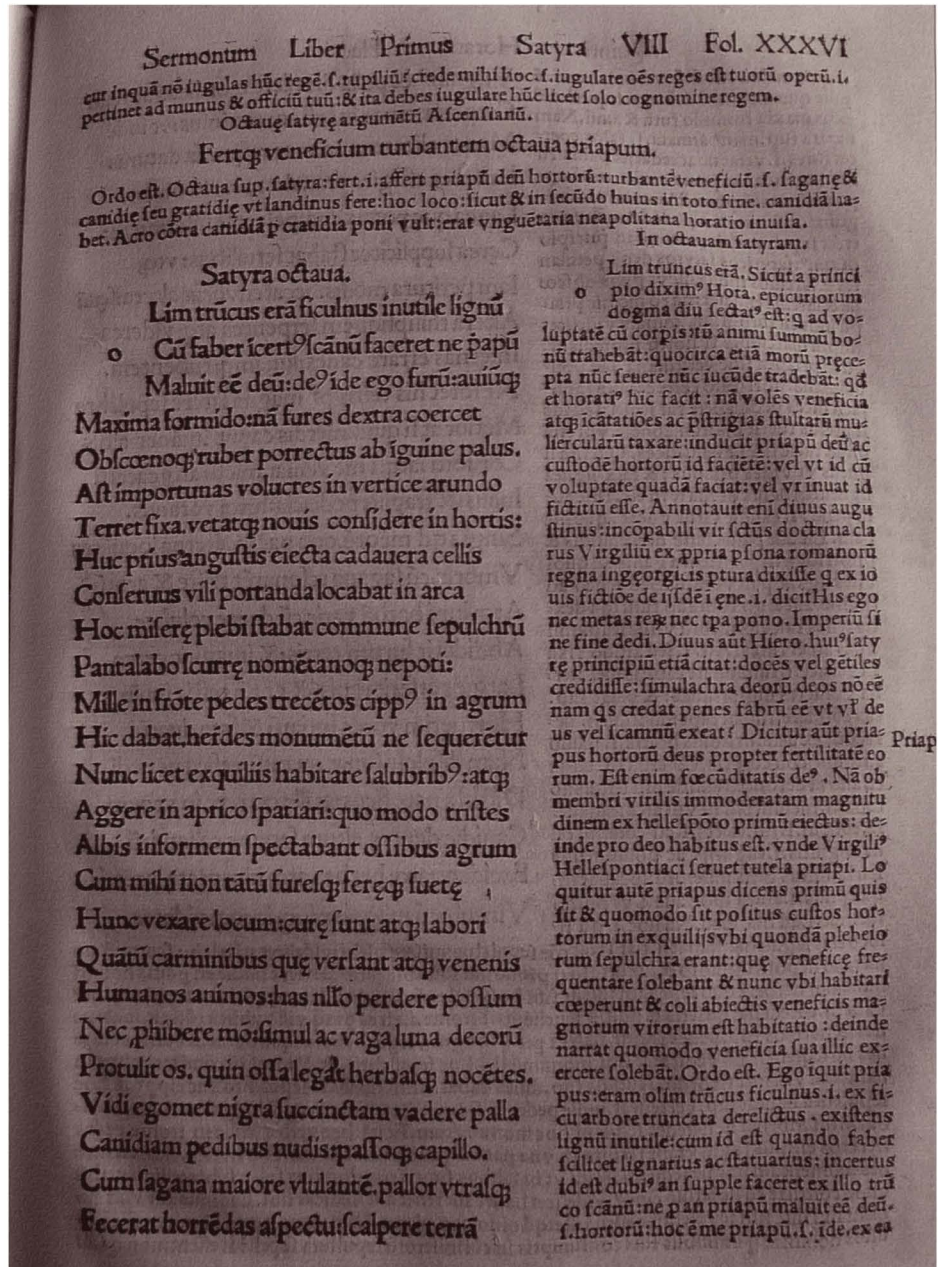 Sermonum Liber Primus Satyra VIII Fol. XXXVI
cur inquā nō iugulas hūc regē.ſ.rupiliū? crede mihi hoc.ſ.iugulare oēs reges eſt tuorū operū.i.
pertinet ad munus & officiū tuū:& ita debes iugulare hūc licet ſolo cognomine regem.
Octauę ſatyrę argumētū Aſcenſianū.
Fertqꝫ veneficium turbantem octaua priapum.
Ordo eſt. Octaua ſup.ſatyra:fert.i.affert priapū deū hortorū:turbantē veneficiū.ſ. ſaganę &
canidię ſeu gratidię vt landinus fere:hoc loco:ſicut & in ſecūdo huius in toto fine. canidiā ha-
bet. Acro cōtra canidiā p cratidia poni vult:erat vnguētaria neapolitana horatio inuiſa.
Satyra octaua.
Lim trūcus erā ficulnus inutile lignū
o Cū faber īcertꝰ ſcānū faceret ne p̄apū
Maluit eē deū:deꝰ īde ego furū:auiūqꝫ
Maxima formido:nā fures dextra coercet
Obſcœnoqꝫ ruber porrectus ab īguine palus.
Aſt importunas volucres in vertice arundo
Terret fixa.vetatqꝫ nouis conſidere in hortis:
Huc prius anguſtis eiecta cadauera cellis
Conſeruus vili portanda locabat in arca
Hoc miſerę plebi ſtabat commune ſepulchrū
Pantalabo ſcurrę nomētanoqꝫ nepoti:
Mille in frōte pedes trecētos cippꝰ in agrum
Hic dabat,heŕdes monumētū ne ſequerētur
Nunc licet exquiliis habitare ſalubribꝰ:atqꝫ
Aggere in aprico ſpatiari:quo modo triſtes
Albis informem ſpectabant oſſibus agrum
Cum mihi non tātū fureſqꝫ feręqꝫ ſuetę
Hunc vexare locum:curę ſunt atqꝫ labori
Quātū carminibus quę verſant atqꝫ venenis
Humanos animos:has nll̄o perdere poſſum
Nec ꝓhibere mō:ſimul ac vaga luna decorū
Protulit os. quin oſſa legāt herbaſqꝫ nocētes.
Vidi egomet nigra ſuccinctam vadere palla
Canidiam pedibus nudis:paſſoqꝫ capillo.
Cum ſagana maiore vlulantē.pallor vtraſqꝫ
Fecerat horrēdas aſpectu:ſcalpere terrā
In octauam ſatyram.
Lim truncus erā. Sicut a princi
o pio diximꝰ Hora. epicuriorum
dogma diu ſectatꝰ eſt:q ad vo-
luptatē cū corpis:tū animi ſummū bo-
nū trahebāt:quocirca etiā morū pręce-
pta nūc ſeuere nūc iucūde tradebāt: qd̄
et horatiꝰ hic facit : nā volēs veneficia
atqꝫ īcātatiōes ac p̄ſtrigias ſtultarū mu-
liercularū taxare:inducit priapū deū ac
cuſtodē hortorū id faciētē:vel vt id cū
voluptate quadā faciat:vel vt inuat id
fictitiū eſſe. Annotauit eni diuus augu
ſtinus:incōpabili vir ſctūs doctrina cla
rus Virgiliū ex ꝓpria pſona romanorū
regna in georgicis ptura dixiſſe q ex io
uis fictiōe de ijſdē ī ęne.i. dicit His ego
nec metas reꝝ nec tpa pono. Imperiū ſi
ne fine dedi. Diuus aūt Hiero.huiꝰ ſaty
rę principiū etiā citat:docēs vel gētiles
credidiſſe:ſimulachra deorū deos nō eē
nam qs credat penes fabrū eē vt vľ de
us vel ſcamnū exeat? Dicitur aūt pria-
pus hortorū deus propter fertilitatē eo
rum. Eſt enim fœcūditatis deꝰ. Nā ob
membri virilis immoderatam magnitu
dinem ex helleſpōto primū eiectus: de-
inde pro deo habitus eſt. vnde Virgiliꝰ
Helleſpontiaci ſeruet tutela priapi. Lo
quitur autē priapus dicens primū quis
ſit & quomodo ſit poſitus cuſtos hor-
torum in exquilijs vbi quondā plebeio
rum ſepulchra erant:quę veneficę fre-
quentare ſolebant & nunc vbi habitari
cœperunt & coli abiectis veneficis ma-
gnorum virorum eſt habitatio : deinde
narrat quomodo veneficia ſua illic ex-
ercere ſolebāt. Ordo eſt. Ego īquit pria
pus:eram olim trūcus ficulnus.i. ex fi-
cu arbore truncata derelictus . exiſtens
lignū inutile:cum id eſt quando faber
ſcilicet lignarius ac ſtatuarius: incertus
id eſt dubiꝰ an ſupple faceret ex illo trū
co ſcānū: ne p an priapū maluit eē deū.
ſ.hortorū:hoc ē me priapū.ſ. īde.ex ea
Priap